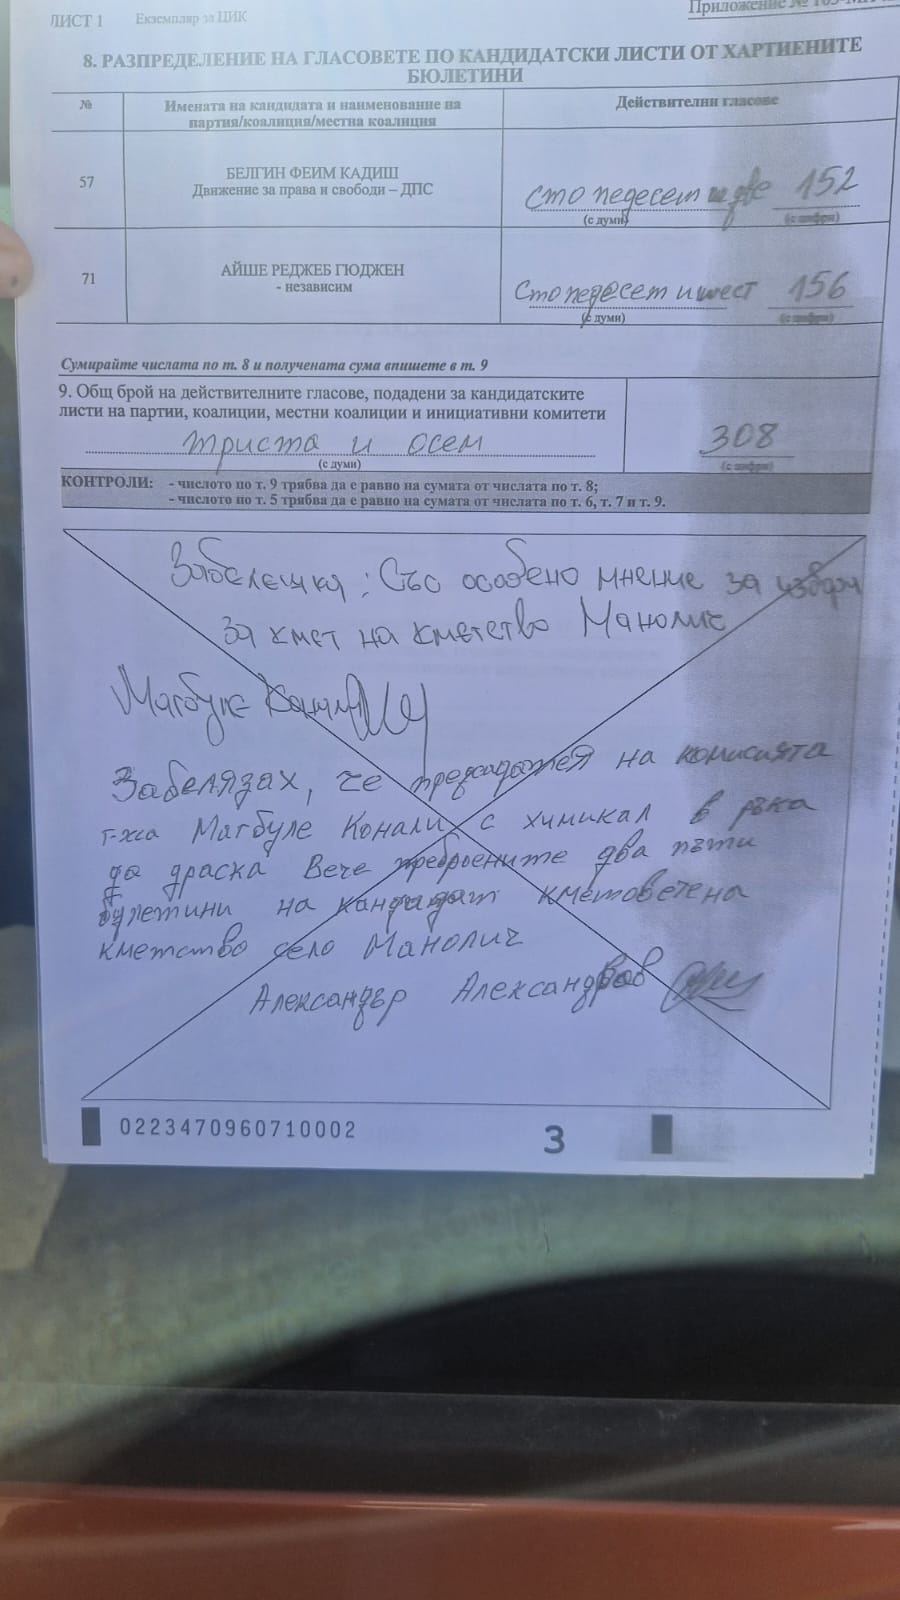 ЛИСТ 1 Екземпляр за ЦИК Приложение №
8. РАЗПРЕДЕЛЕНИЕ НА ГЛАСОВЕТЕ ПО КАНДИДАТСКИ ЛИСТИ ОТ ХАРТИЕНИТЕ
БЮЛЕТИНИ
№ Имената на кандидата и наименование на Действителни гласове
партия/коалиция/местна коалиция
57 БЕЛГИН ФЕИМ КАДИШ
Движение за права и свободи – ДПС
сто педесет и две 152
(с думи) (с цифри)
71 АЙШЕ РЕДЖЕБ ГЮДЖЕН
- независим
Сто педесет и шест 156
(с думи) (с цифри)
Сумирайте числата по т. 8 и получената сума впишете в т. 9
9. Общ брой на действителните гласове, подадени за кандидатските
листи на партии, коалиции, местни коалиции и инициативни комитети
триста и осем 308
(с думи) (с цифри)
КОНТРОЛИ: - числото по т. 9 трябва да е равно на сумата от числата по т. 8;
- числото по т. 5 трябва да е равно на сумата от числата по т. 6, т. 7 и т. 9.
Забележка: Със особено мнение за избори
за кмет на кметство Манолич
Магбуле
Забелязах, че председателя на комисията
г-жа Магбуле Конали с химикал в ръка
да драска вече преброените два пъти
бюлетини на кандидат кметовете на
кметство село Манолич
Александър Александров
0223470960710002 3